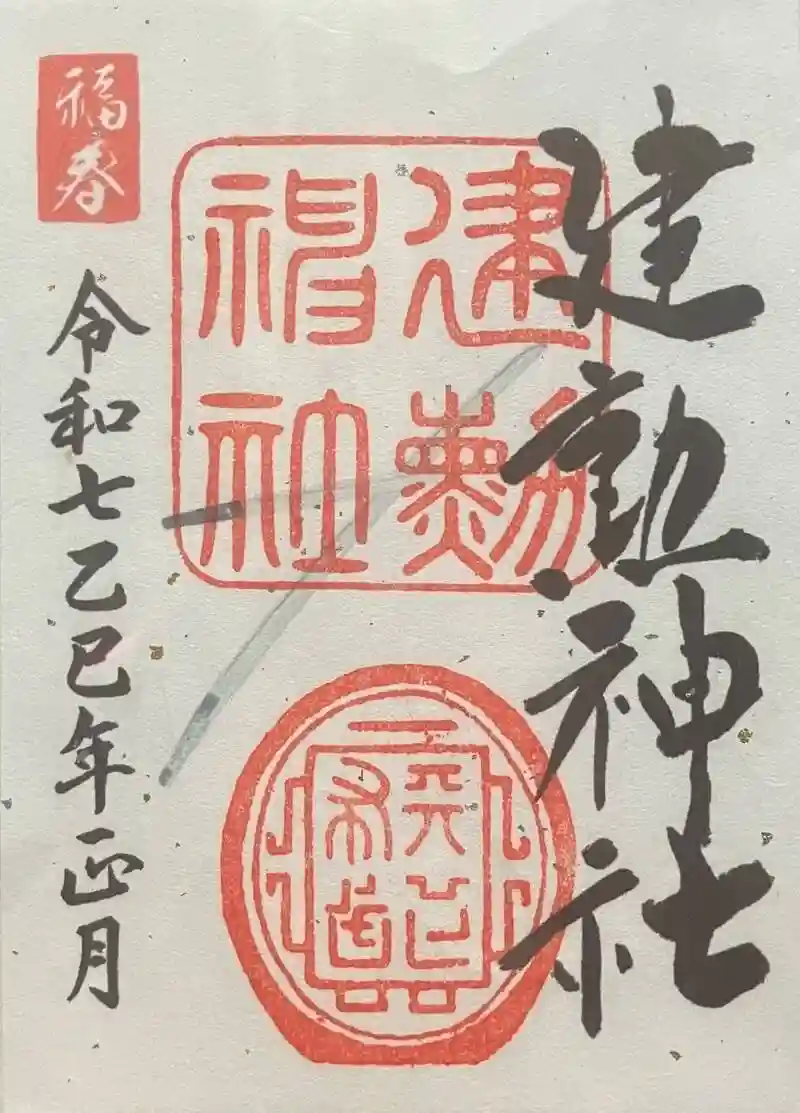 建勲神社
建勲
神社
福春
令和七乙巳年正月